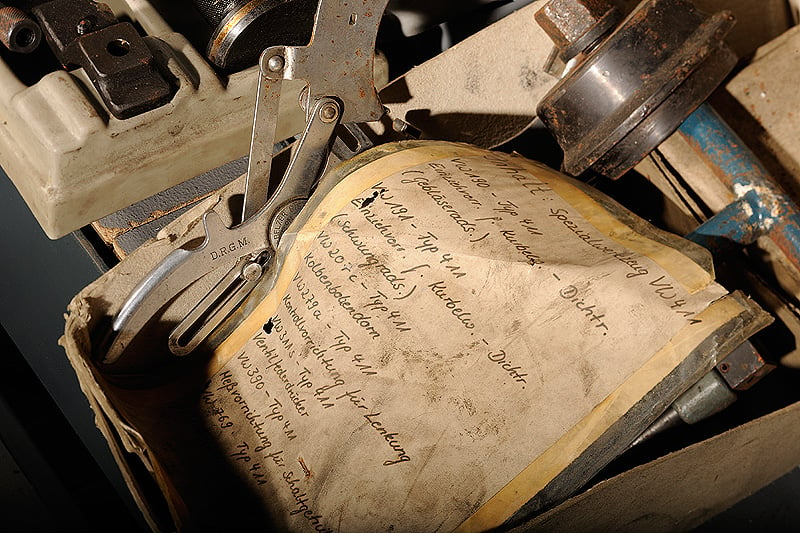 D.R.G.M.
Inhalt: Spezialwerkzeug VW 411
VW 190 - Typ 411
Einziehvorr. f. Kurbelw. - Dichtr.
(Gebläserads.)
VW 191 - Typ 411
Einziehvorr. f. Kurbelw. - Dichtr.
(Schwungrads.)
VW 207c - Typ 411
Kolbenbolzendorn
VW 279a - Typ 411
Kontrollvorrichtung für Lenkung
VW 311s - Typ 411
Ventilfederdrücker
VW 390 - Typ 411
Meßvorrichtung für Schaltge
769 - Typ 411